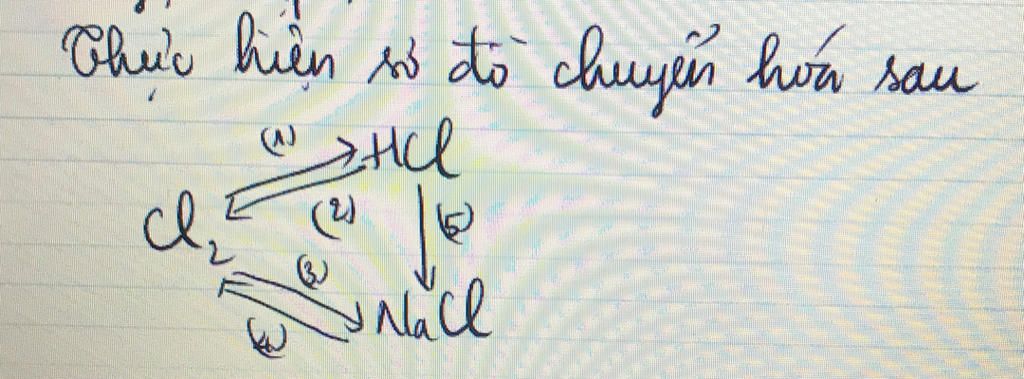 Thực hiện sơ đồ chuyển hóa sau
(1) HCl
Cl₂ (2) (5)
(3)
(4) NaCl